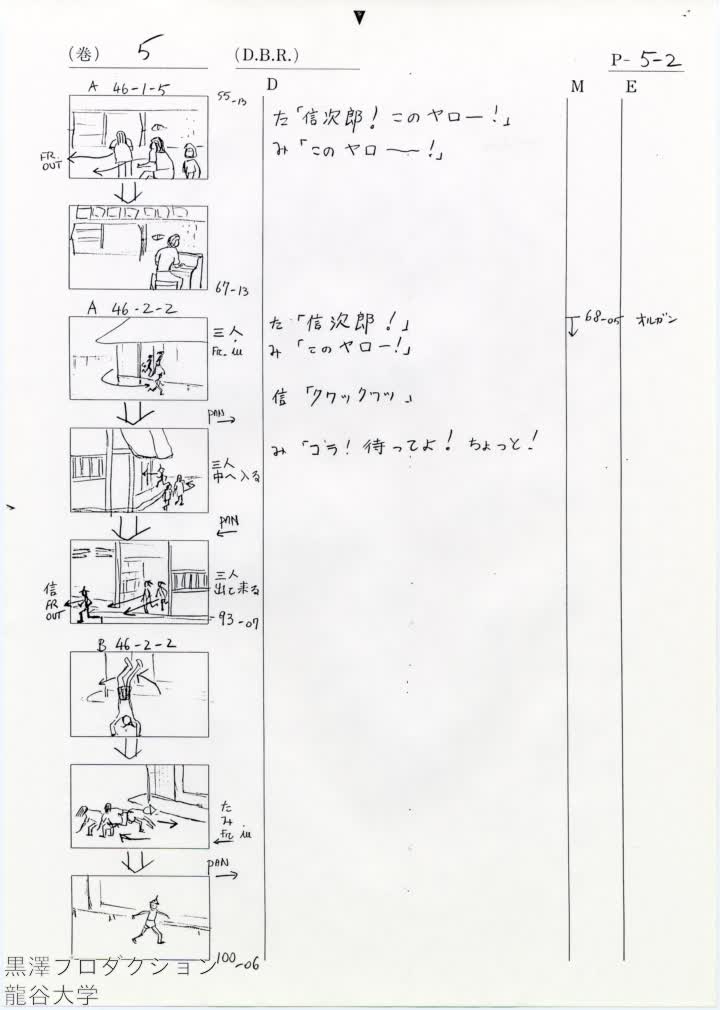 (巻) 5 (D.B.R.) P- 5-2
D M E
A 46-1-5
55-13
た「信次郎!このヤロー!」
み「このヤロ〜!」
FR
OUT
67-13
A 46-2-2
た「信次郎!」
68-05 オルガン
三人
Fr. in
み「このヤロー!」
信「クワックワッ」
PAN
み「コラ!待ってよ!ちょっと!」
三人
中へ入る
PAN
三人
出て来る
信
FR
OUT
93-07
B 46-2-2
た
み
Fr. in
PAN
100-06
黒澤プロダクション
龍谷大学